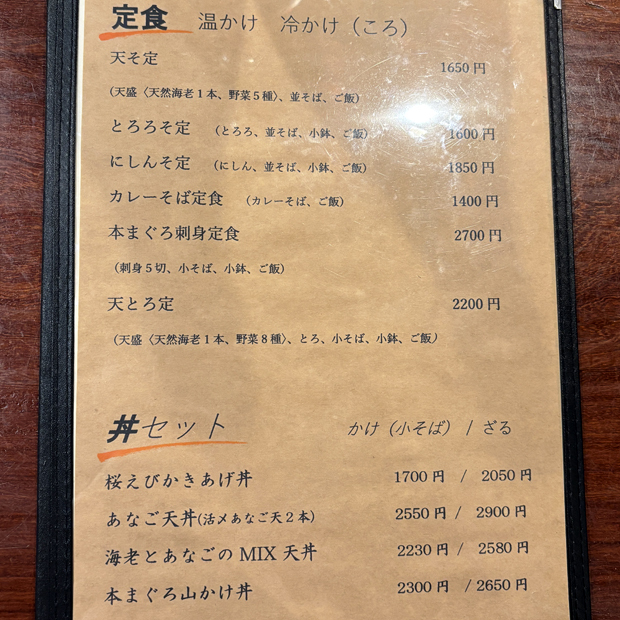 定食 温かけ 冷かけ（ころ）
天そ定 1650円
（天盛〈天然海老1本、野菜5種〉、並そば、ご飯）
とろろそ定 （とろろ、並そば、小鉢、ご飯） 1600円
にしんそ定 （にしん、並そば、小鉢、ご飯） 1850円
カレーそば定食 （カレーそば、ご飯） 1400円
本まぐろ刺身定食 2700円
（刺身5切、小そば、小鉢、ご飯）
天とろ定 2200円
（天盛〈天然海老1本、野菜8種〉、とろ、小そば、小鉢、ご飯）
丼セット かけ（小そば） / ざる
桜えびかきあげ丼 1700円 / 2050円
あなご天丼(活〆あなご天2本) 2550円 / 2900円
海老とあなごのMIX天丼 2230円 / 2580円
本まぐろ山かけ丼 2300円 / 2650円